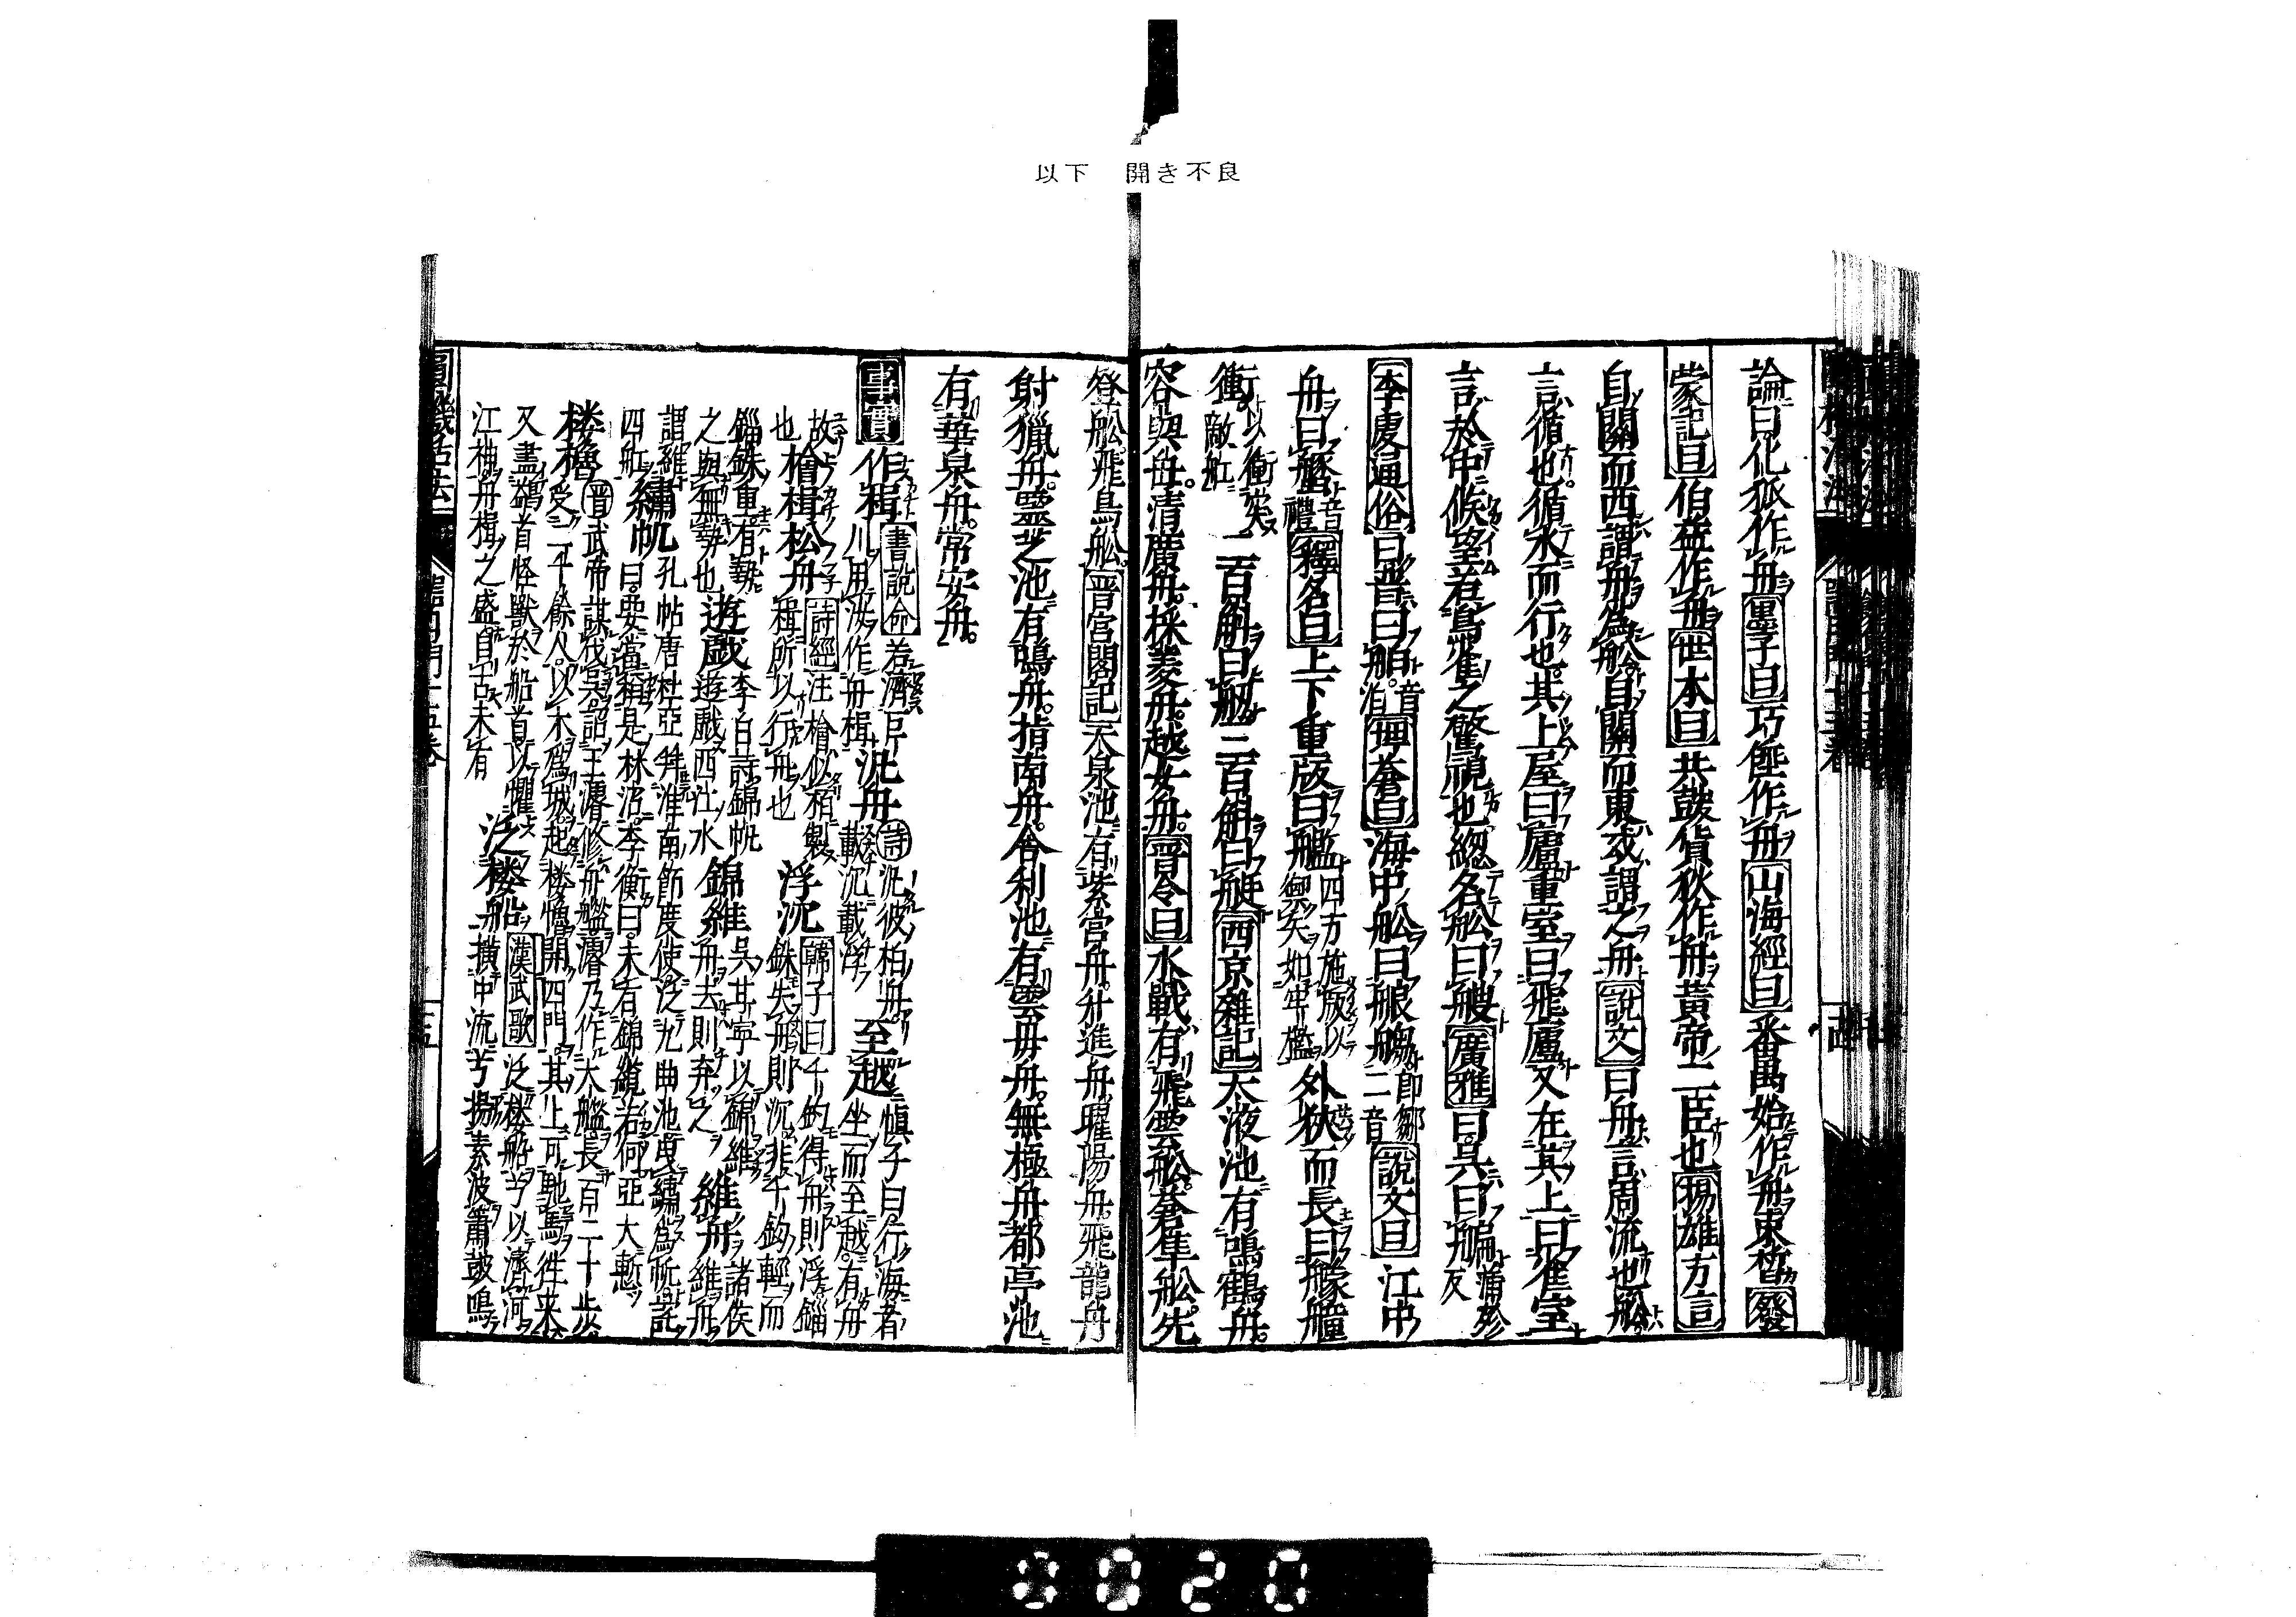 以下　開き不良
論曰化狐作舟墨子曰巧倕作舟山海經曰番禺始作舟束晳發
蒙記曰伯益作舟世本曰共鼓貨狄作舟黃帝二臣也揚雄方言
自關而西謂舟爲舩自關而東或謂之舟說文曰舟言周流也舩
言循也循水而行也其上屋曰廬重室曰飛廬又在其上曰雀室
言於中候望若鳥雀之驚視也緫名舩曰艘廣雅曰吳曰艑蒲殄反
李虔通俗曰晉曰舶音泊埤蒼曰海中舩曰艆䑹卽鄒二音說文曰江中
舟曰艫音禮釋名曰上下重版曰艦四方施版以禦矢如牢檻外狹而長曰艨艟
衝行以衝突敵舡二百斛曰舠三百斛曰艇西京雜記太液池有鳴鶴舟
容與舟清廣舟採菱舟越女舟晉令曰水戰有飛雲舩蒼隼舩先
登舩飛鳥舩晉宮閣記天泉池有紫宮舟升進舟曜陽舟飛龍舟
射獵舟靈芝池有鳴舟指南舟舍利池有雲母舟無極舟都亭池
有華泉舟常安舟
事實 作楫書說命若濟巨川用汝作舟楫 汎舟詩汎彼栢舟載沉載浮 至越愼子曰行海者坐而至越有舟
故也 檜楫松舟詩經注檜似栢製楫所以行舟也 浮沉韓子曰千鈞得舟則浮錙銖失舟則沉非千鈞輕而
錙銖重有勢之與無勢也 遊戲李白詩錦帆遊戲西江水 錦維吳甘寧以錦維舟去則弃之 維舟諸侯維舟
謂維四舡 繡帆孔帖唐杜亞爲淮南節度使泛九曲池曳繡爲帆詫曰要當稱是林沼李衡曰未有錦纜若何亞大慙
楼櫓晉武帝謀伐吳詔王濬修舟艦濬乃作大艦長百二十步受二千餘人以木爲城起楼櫓開四門其上可馳馬徃来
又畫鷁首怪獸於船首以懼江神舟楫之盛自古未有 泛楼船漢武歌泛楼船兮以濟河橫中流兮揚素波簫鼓鳴
0020